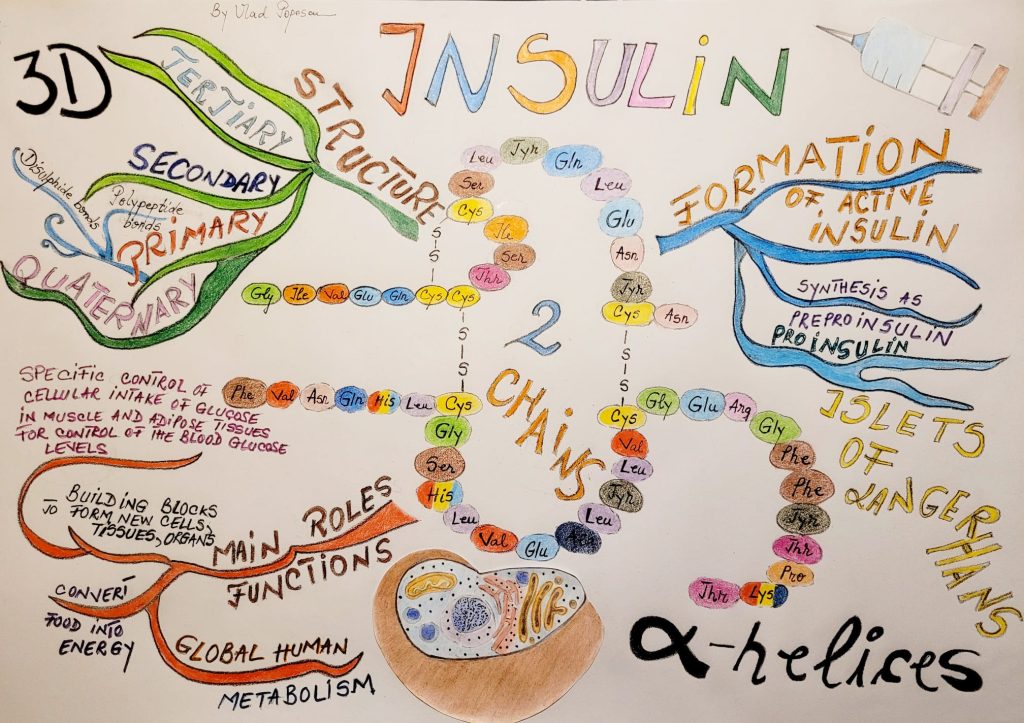 By Vlad Popescu
INSULIN
3D
STRUCTURE
TERTIARY
SECONDARY
PRIMARY
Disulphide bonds
Polypeptide
bonds
QUATERNARY
FORMATION
OF ACTIVE
INSULIN
SYNTHESIS AS
PREPROINSULIN
PROINSULIN
ISLETS
OF
LANGERHANS
2
CHAINS
Gly Ile Val Glu Gln Cys Cys Thr Ser Ile Cys Ser Leu Tyr Gln Leu Glu Asn Tyr Cys Asn
S
S
S
S
S
S
Phe Val Asn Gln His Leu Cys Gly Ser His Leu Val Glu Ala Leu Tyr Leu Val Cys Gly Glu Arg Gly Phe Phe Tyr Thr Pro Lys Thr
SPECIFIC CONTROL OF
CELLULAR INTAKE OF GLUCOSE
IN MUSCLE AND ADIPOSE TISSUES
FOR CONTROL OF THE BLOOD GLUCOSE
LEVELS
MAIN ROLES
FUNCTIONS
BUILDING BLOCKS
TO FORM NEW CELLS,
TISSUES, ORGANS
CONVERT
FOOD INTO
ENERGY
GLOBAL HUMAN
METABOLISM
α-helices